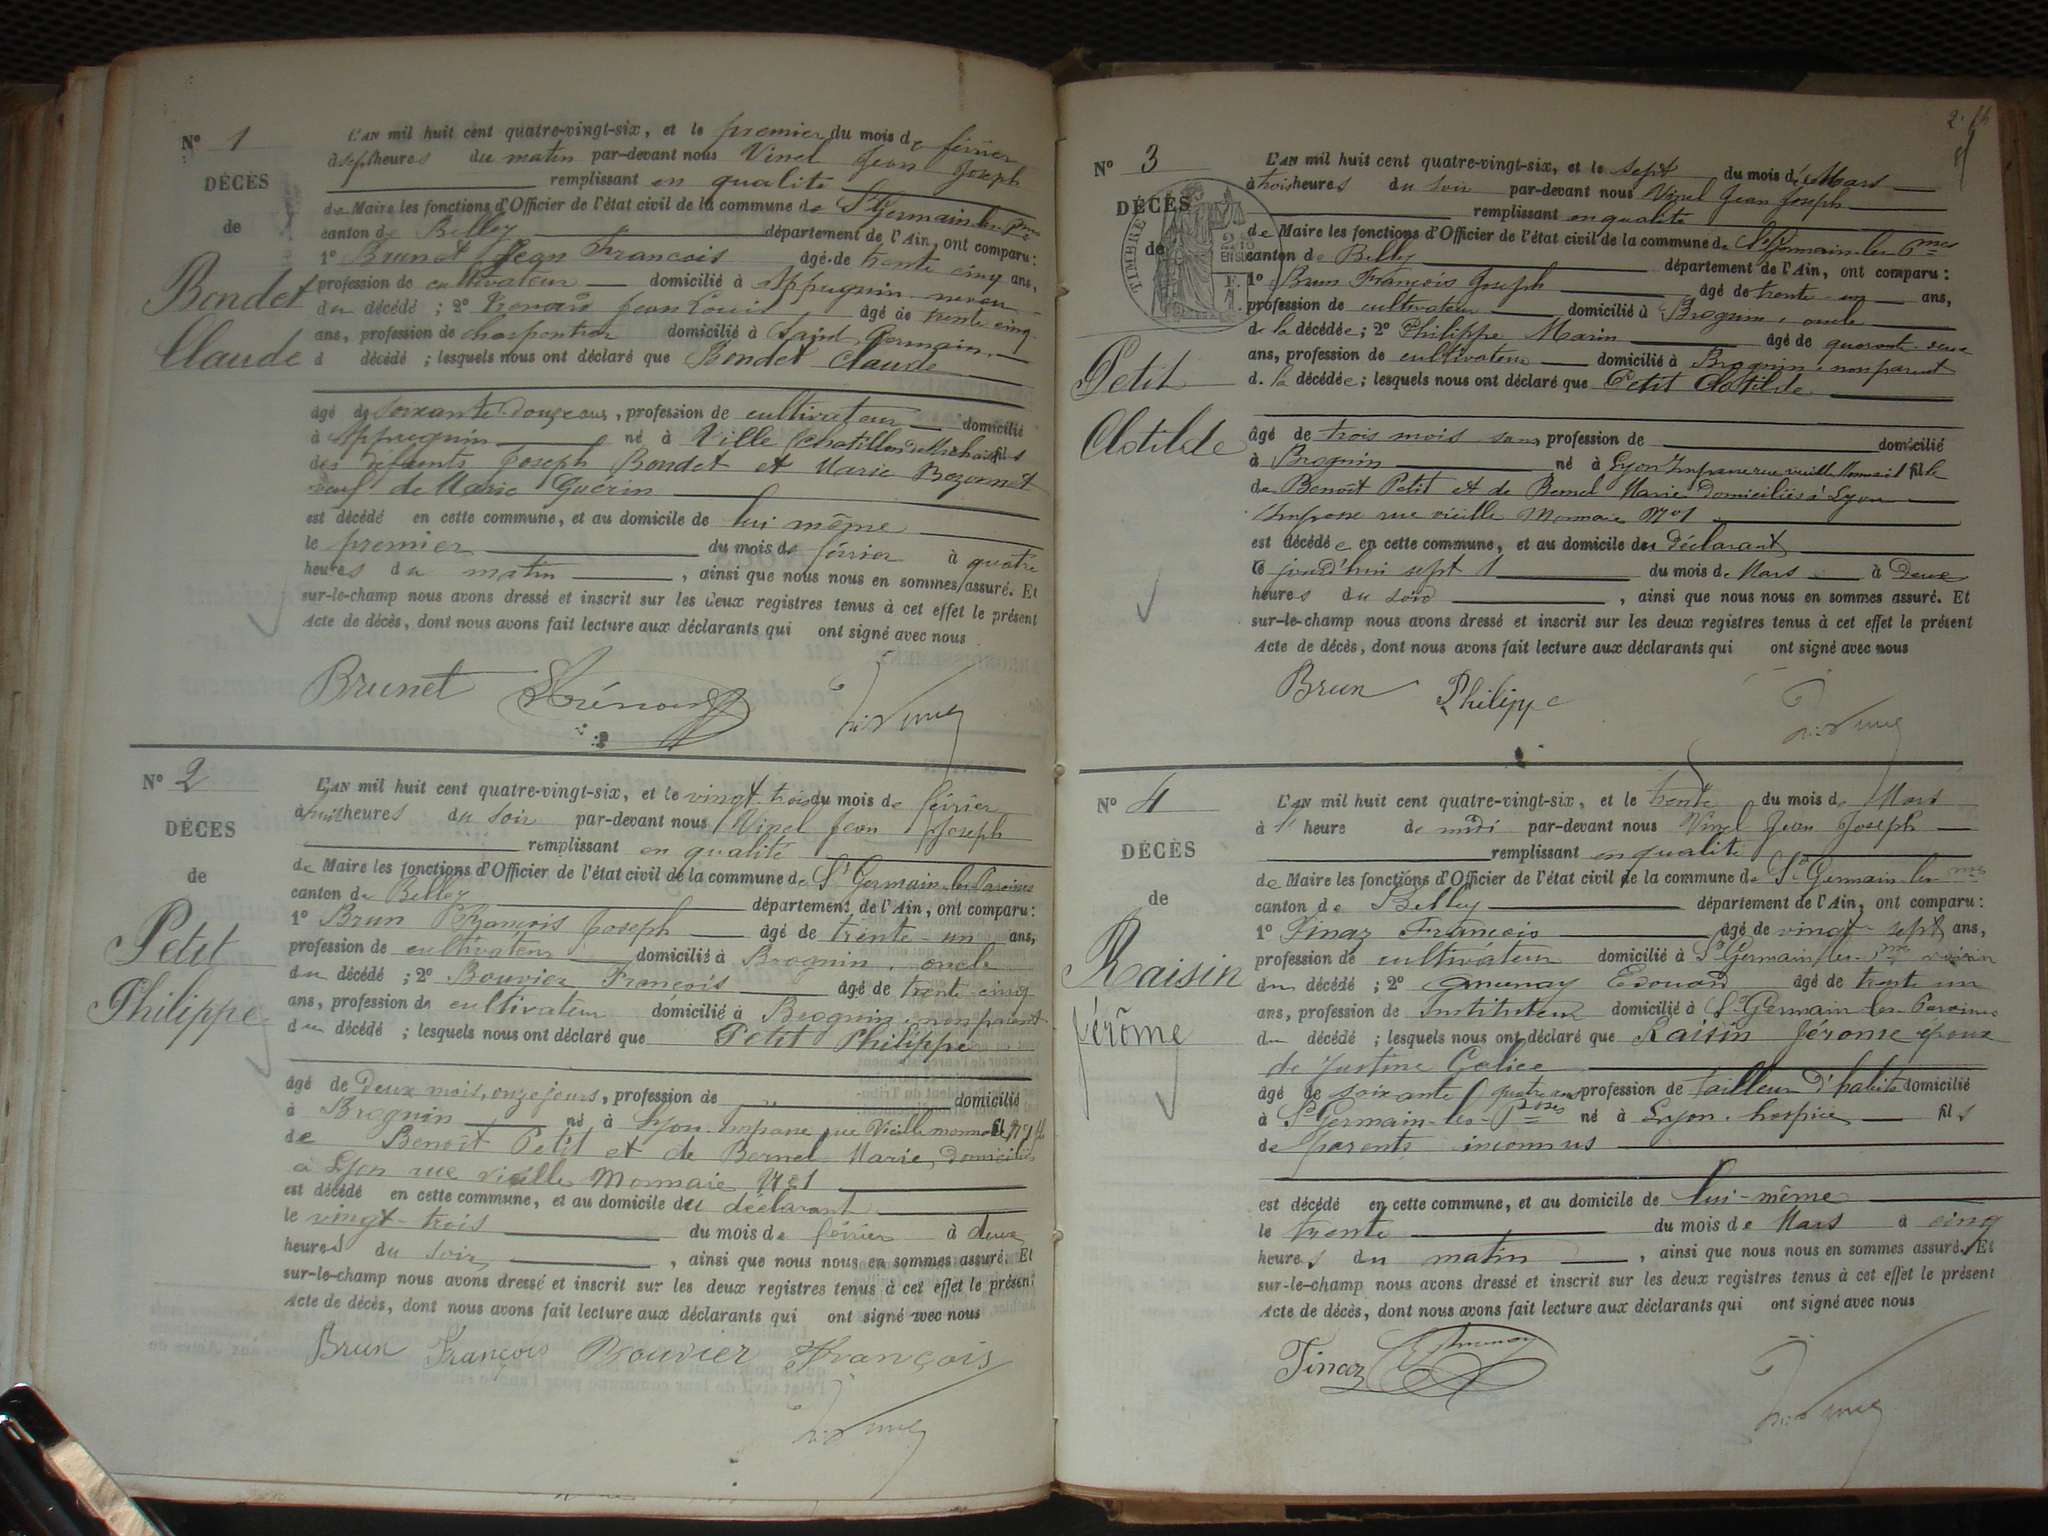 N° 1
DÉCÈS
de
Bondet
Claude
L'AN mil huit cent quatre-vingt-six, et le premier du mois de février
à sept heures du matin par-devant nous Vinel Jean Joseph
remplissant en qualité
de Maire les fonctions d'Officier de l'état civil de la commune de St Germain les Pmes
canton de Belley département de l'Ain, ont comparu :
1° Brunet Jean François âgé de trente cinq ans,
profession de cultivateur domicilié à Appregnin neveu
du décédé ; 2° Jean Louis âgé de trente cinq
ans, profession de charpentier domicilié à Saint Germain
d décédé ; lesquels nous ont déclaré que Bondet Claude
âgé de soixante douze ans, profession de cultivateur domicilié
à Appregnin né à Ville fils
des défunts Joseph Bondet et Marie Bozonnet
veuf de Marie Guérin
est décédé en cette commune, et au domicile de lui même
le premier du mois de février à quatre
heures du matin , ainsi que nous nous en sommes assuré. Et
sur-le-champ nous avons dressé et inscrit sur les deux registres tenus à cet effet le présent
Acte de décès, dont nous avons fait lecture aux déclarants qui ont signé avec nous
Brunet
N° 2
DÉCÈS
de
Petit
Philippe
L'AN mil huit cent quatre-vingt-six, et le vingt-trois du mois de février
à heures du soir par-devant nous Vinel Jean Joseph
remplissant en qualité
de Maire les fonctions d'Officier de l'état civil de la commune de St Germain les Paroisses
canton de Belley département de l'Ain, ont comparu :
1° Brun François Joseph âgé de trente-un ans,
profession de cultivateur domicilié à Brognin, oncle
du décédé ; 2° Bouvier François âgé de trente cinq
ans, profession de cultivateur domicilié à Brognin, non parent
du décédé ; lesquels nous ont déclaré que Petit Philippe
âgé de deux mois, onze jours, profession de domicilié
à Brognin né à Lyon Impasse rue Vieille monnaie fils
de Benoît Petit et de Bernel Marie, domiciliés
à Lyon rue vieille Monnaie N° 1
est décédé en cette commune, et au domicile du déclarant
le vingt-trois du mois de février à deux
heures du soir , ainsi que nous nous en sommes assuré. Et
sur-le-champ nous avons dressé et inscrit sur les deux registres tenus à cet effet le présent
Acte de décès, dont nous avons fait lecture aux déclarants qui ont signé avec nous
Brun François Bouvier François
N° 3
DÉCÈS
de
TIMBRE
Petit
Clotilde
L'AN mil huit cent quatre-vingt-six, et le sept du mois de Mars
à trois heures du soir par-devant nous Vinel Jean Joseph
remplissant en qualité
de Maire les fonctions d'Officier de l'état civil de la commune de St Germain les Pmes
canton de Belley département de l'Ain, ont comparu :
1° Brun François Joseph âgé de trente-un ans,
profession de cultivateur domicilié à Brognin, oncle
de la décédée ; 2° Philippe Marin âgé de quarante
ans, profession de cultivateur domicilié à Brognin, non parent
d. la décédée ; lesquels nous ont déclaré que Petit Clotilde
âgé de trois mois sans profession de domicilié
à Brognin né à Lyon Impasse rue vieille Monnaie fille
de Benoît Petit et de Bernel Marie domiciliés à Lyon
Impasse rue vieille Monnaie N° 1
est décédée en cette commune, et au domicile du déclarant
le jourd'hui sept du mois de Mars à deux
heures du soir , ainsi que nous nous en sommes assuré. Et
sur-le-champ nous avons dressé et inscrit sur les deux registres tenus à cet effet le présent
Acte de décès, dont nous avons fait lecture aux déclarants qui ont signé avec nous
Brun Philippe
N° 4
DÉCÈS
de
Raisin
Jérôme
L'AN mil huit cent quatre-vingt-six, et le trente du mois de Mars
à heure de midi par-devant nous Vinel Jean Joseph
remplissant en qualité
de Maire les fonctions d'Officier de l'état civil de la commune de St Germain les mes
canton de Belley département de l'Ain, ont comparu :
1° Tinaz François âgé de vingt-sept ans,
profession de cultivateur domicilié à St Germain les voisin
du décédé ; 2° Edouard âgé de trente un
ans, profession de Instituteur domicilié à St Germain les Paroisses
du décédé ; lesquels nous ont déclaré que Raisin Jérome époux
de Justine
âgé de soixante quatre ans profession de tailleur d'habits domicilié
à St Germain-les- né à Lyon hospice fils
de parents inconnus
est décédé en cette commune, et au domicile de lui-même
le trente du mois de Mars à cinq
heures du matin , ainsi que nous nous en sommes assuré. Et
sur-le-champ nous avons dressé et inscrit sur les deux registres tenus à cet effet le présent
Acte de décès, dont nous avons fait lecture aux déclarants qui ont signé avec nous
Tinaz